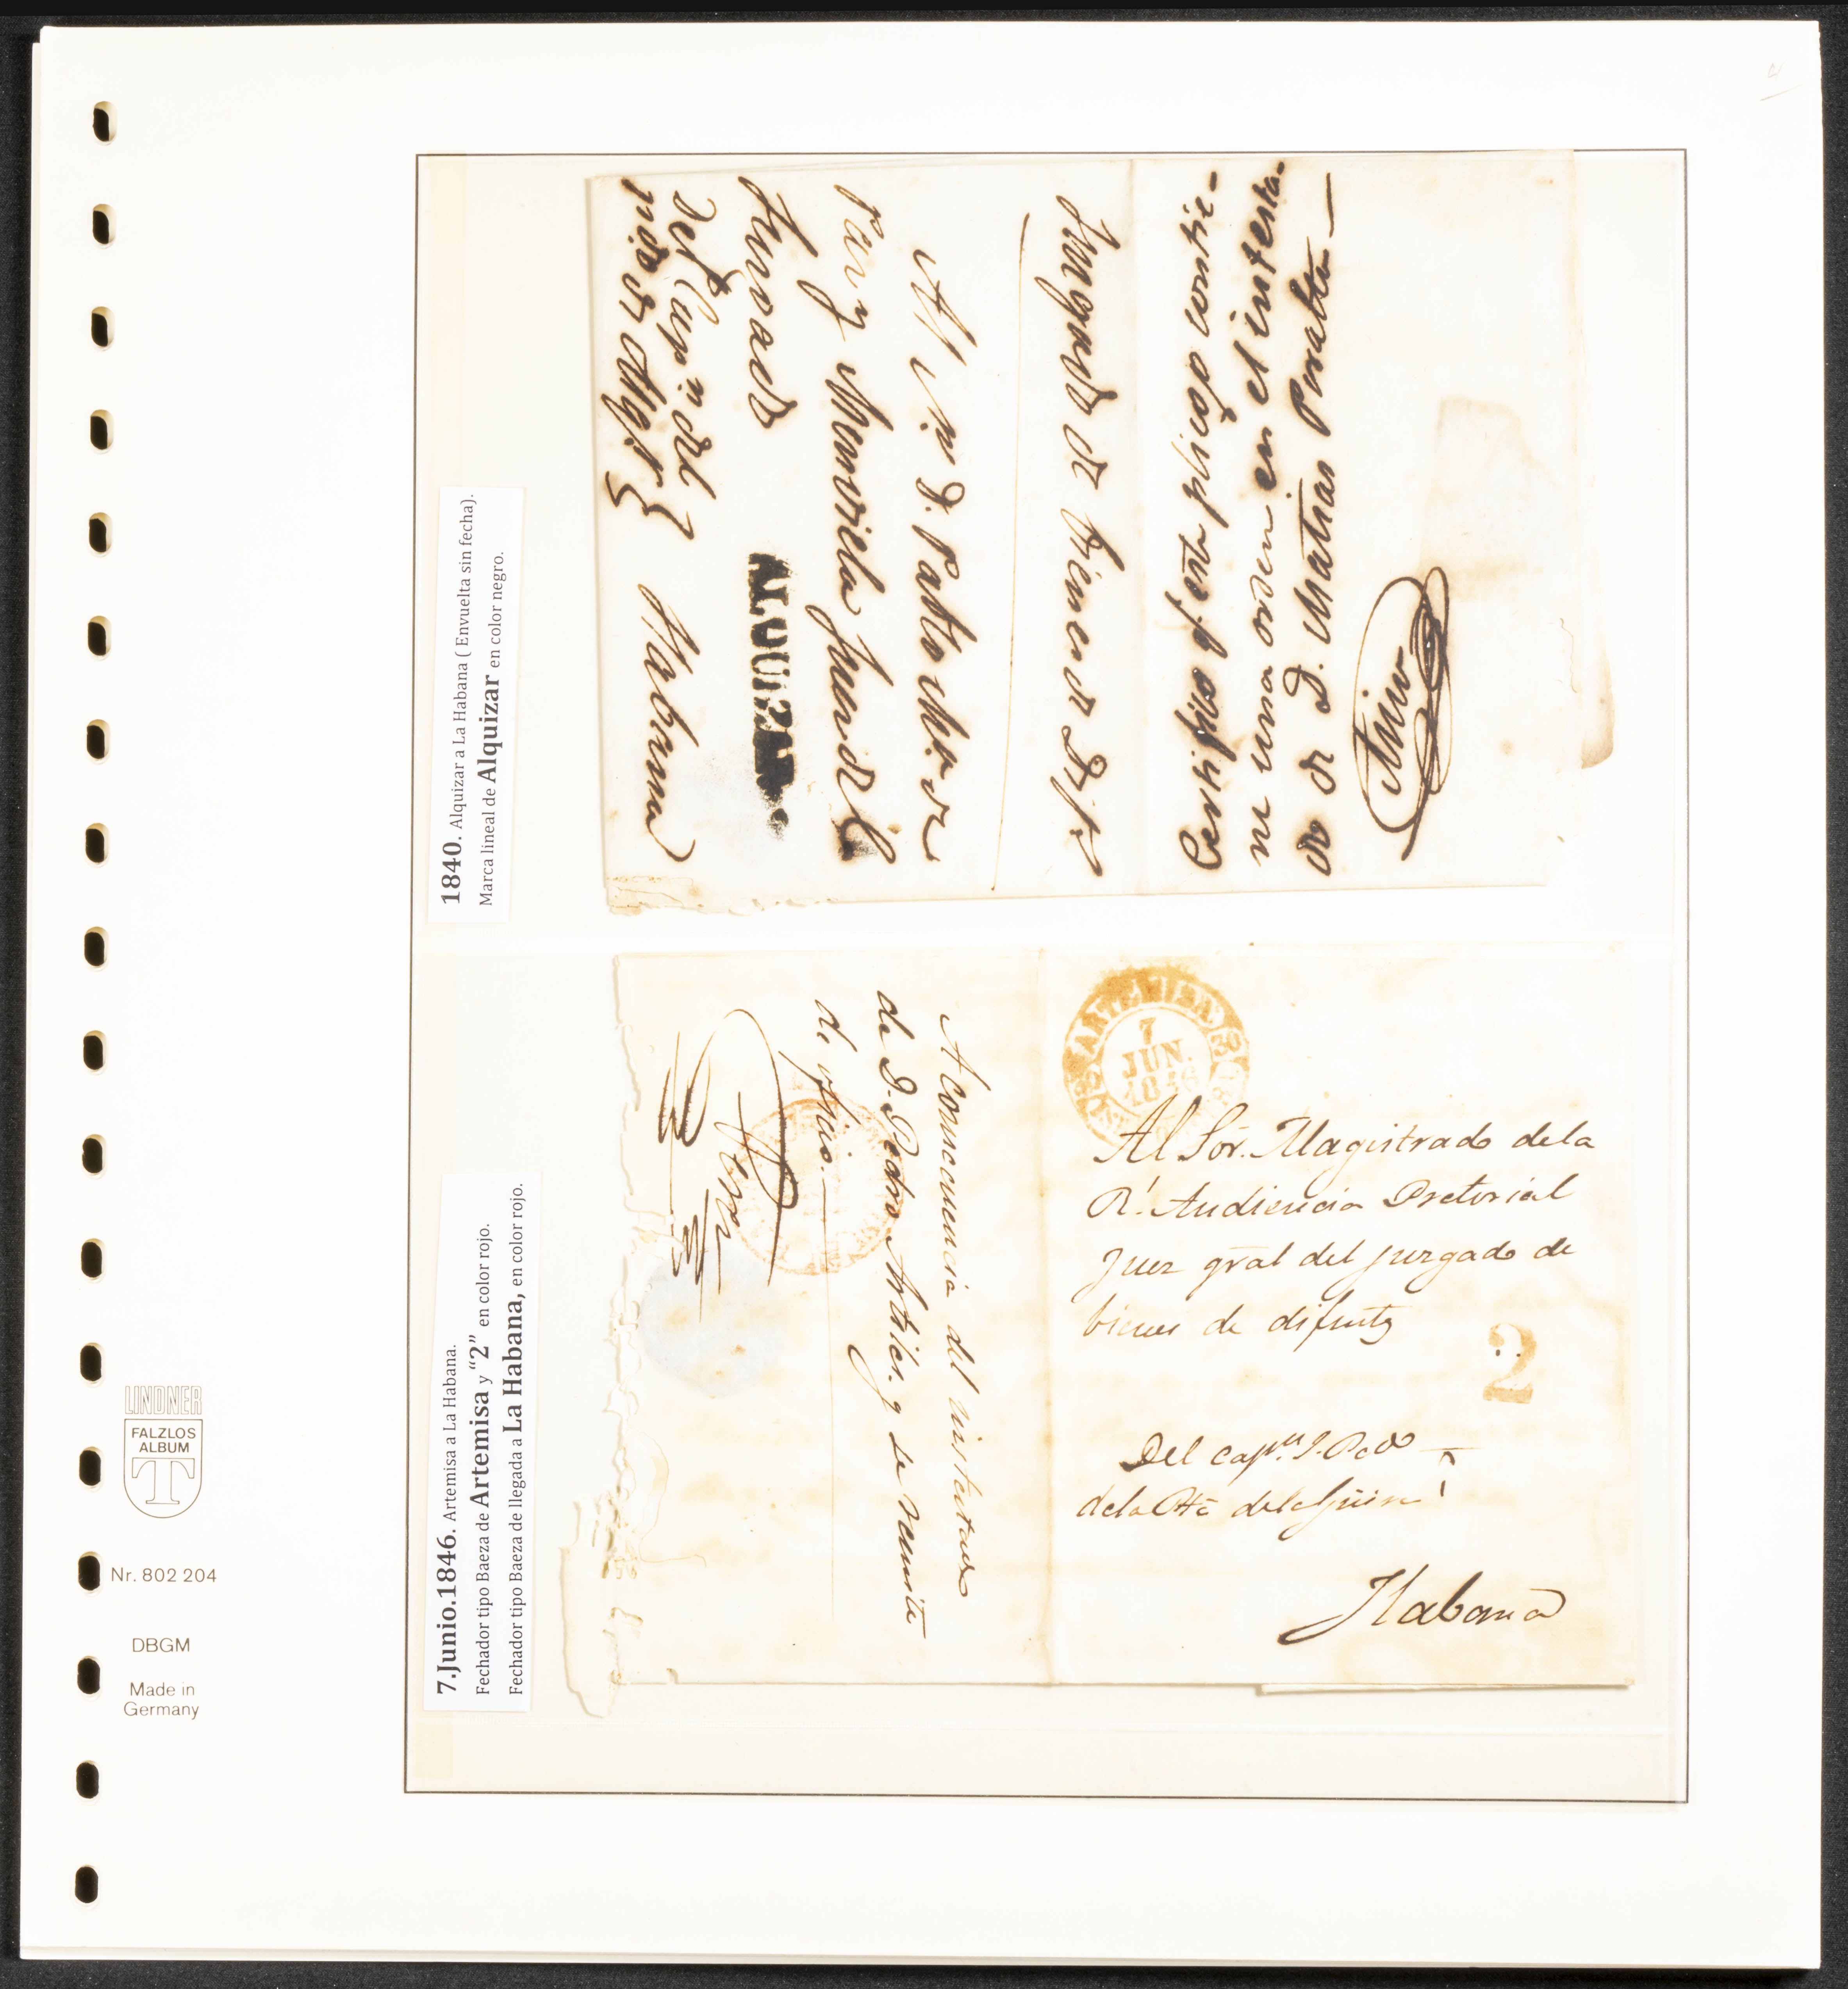 1840. Alquizar a La Habana ( Envuelta sin fecha).
Marca lineal de Alquizar en color negro.
Del Cap.n del
Habana
Juzgado
ALQUIZAR
Al S.or D. Pablo
Juzgado de bienes de
Certifico q.e este pliego contie-
ne una orden en el intesta-
do de D. Matias
7.Junio.1846. Artemisa a La Habana.
Fechador tipo Baeza de Artemisa y "2" en color rojo.
Fechador tipo Baeza de llegada a La Habana, en color rojo.
A consecuencia del
de D. Pedro y se remite
de oficio.
ARTEMISA
7
JUN.
1846
30
Al Sór. Magistrado dela
R.l Audiencia Pretorial
Juez gral del juzgado de
bienes de difuntos
2
Del cap.n
dela
Habana
LINDNER
FALZLOS
ALBUM
T
Nr. 802 204
DBGM
Made in
Germany